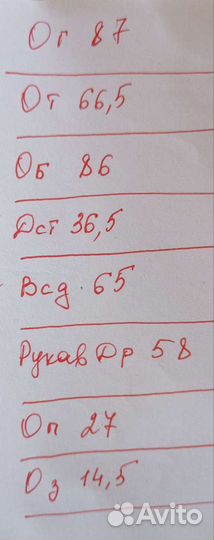 Ог 87
От 66,5
Об 86
Дст 36,5
Всд. 65
Рукав Др 58
Оп 27
Оз 14,5
Avito